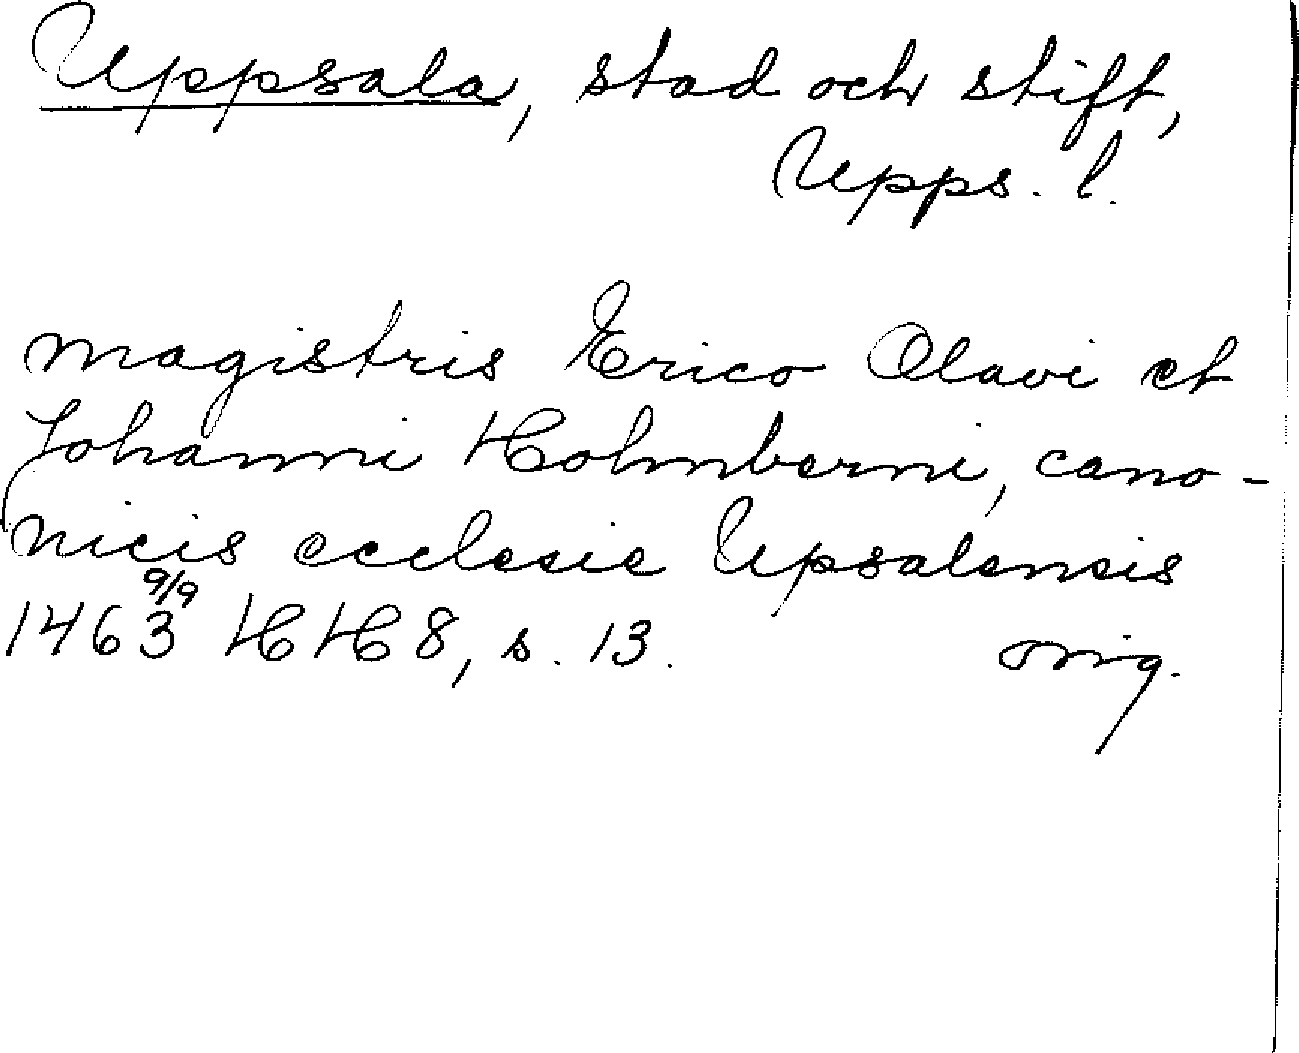 Uppsala, stad och stift,
Upps. l.
magistris Erico Olavi et
Johanni Holmberni, cano-
nicis ecclesie Upsalensis
1463 9/9 HH 8, s. 13. orig.